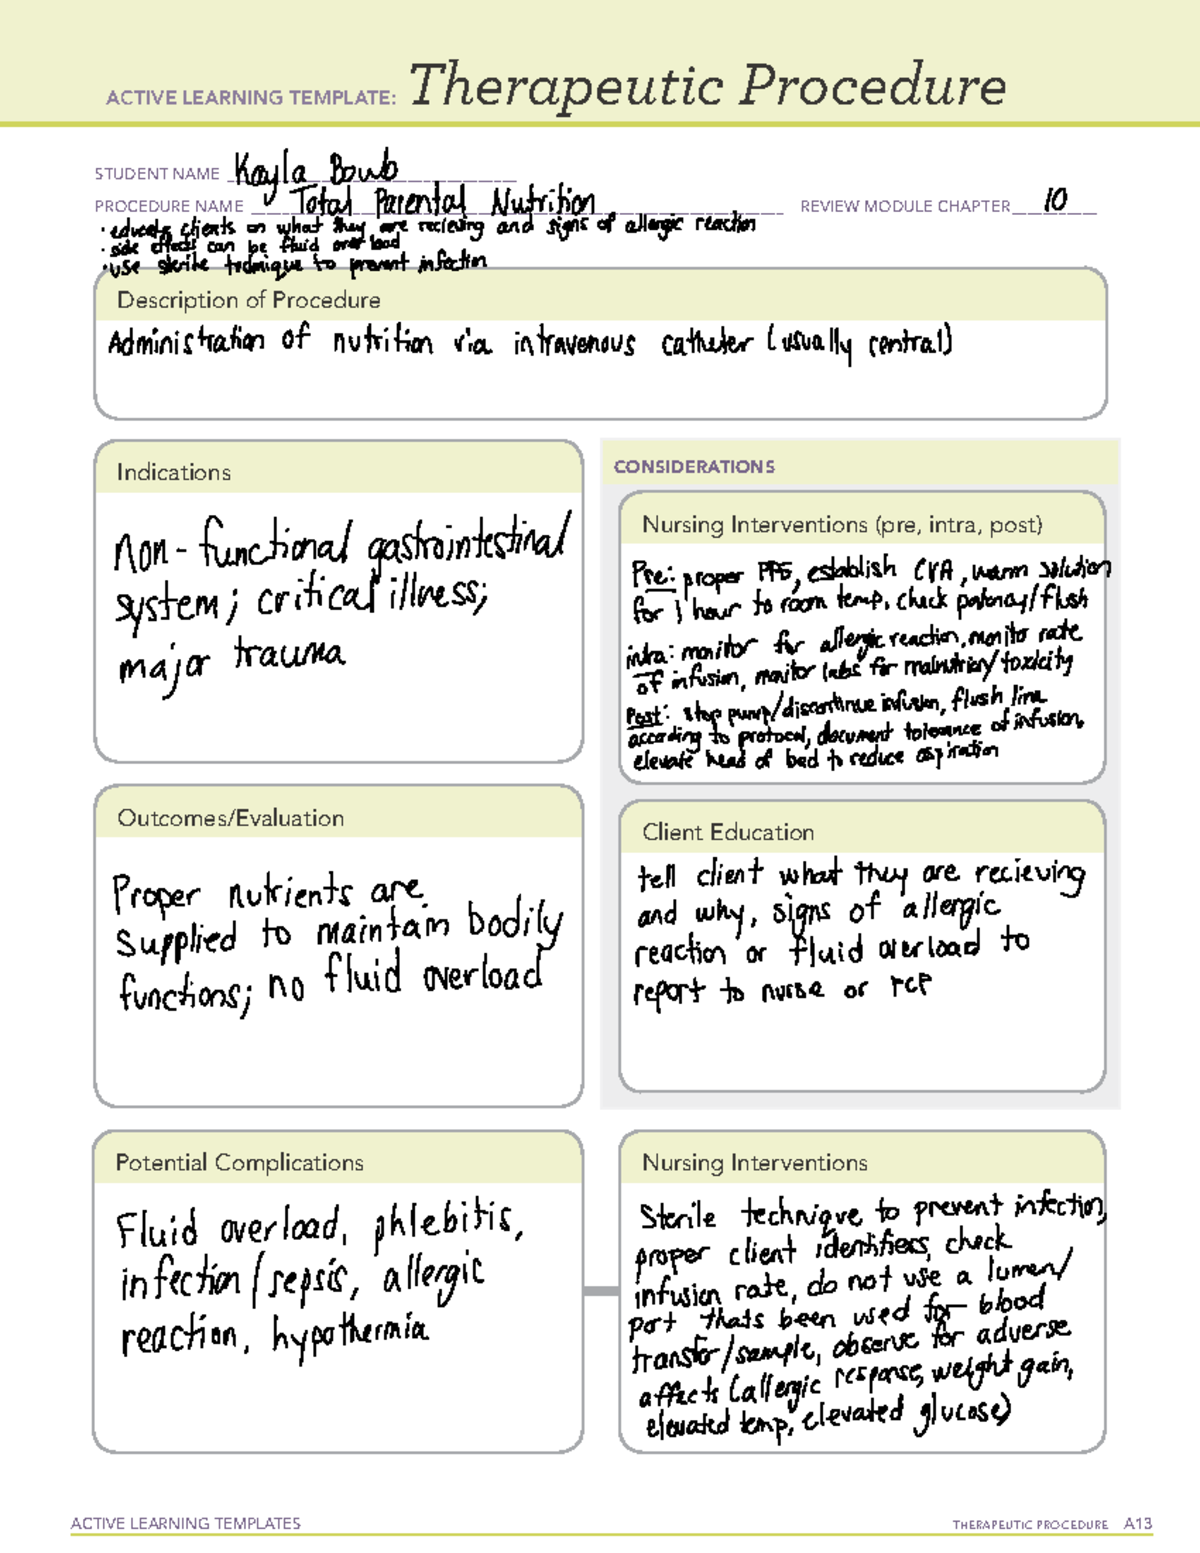 ACTIVE LEARNING TEMPLATE: Therapeutic Procedure
STUDENT NAME Kayla Bowb
PROCEDURE NAME Total Parental Nutrition REVIEW MODULE CHAPTER 10
• educate clients on what they are recieving and signs of allergic reaction
• side effects can be fluid over load
• use sterile technique to prevent infection
Description of Procedure
Administration of nutrition via intravenous catheter (usually central)
Indications
non-functional gastrointestinal
system; critical illness;
major trauma
CONSIDERATIONS
Nursing Interventions (pre, intra, post)
Pre: proper PPE, establish CVA, warm solution
for 1 hour to room temp, check patency/flush
intra: monitor for allergic reaction, monitor rate
of infusion, monitor labs for malnutrition/toxicity
Post: stop pump/discontinue infusion, flush line
according to protocol, document tolerance of infusion,
elevate head of bed to reduce aspiration
Outcomes/Evaluation
Proper nutrients are
supplied to maintain bodily
functions; no fluid overload
Client Education
tell client what they are recieving
and why, signs of allergic
reaction or fluid overload to
report to nurse or PCP
Potential Complications
Fluid overload, phlebitis,
infection/sepsis, allergic
reaction, hypothermia
Nursing Interventions
Sterile technique to prevent infection,
proper client identifiers, check
infusion rate, do not use a lumen/
port thats been used for blood
transfor/sample, observe for adverse
affects (allergic response, weight gain,
elevated temp, elevated glucose)
ACTIVE LEARNING TEMPLATES
THERAPEUTIC PROCEDURE A13